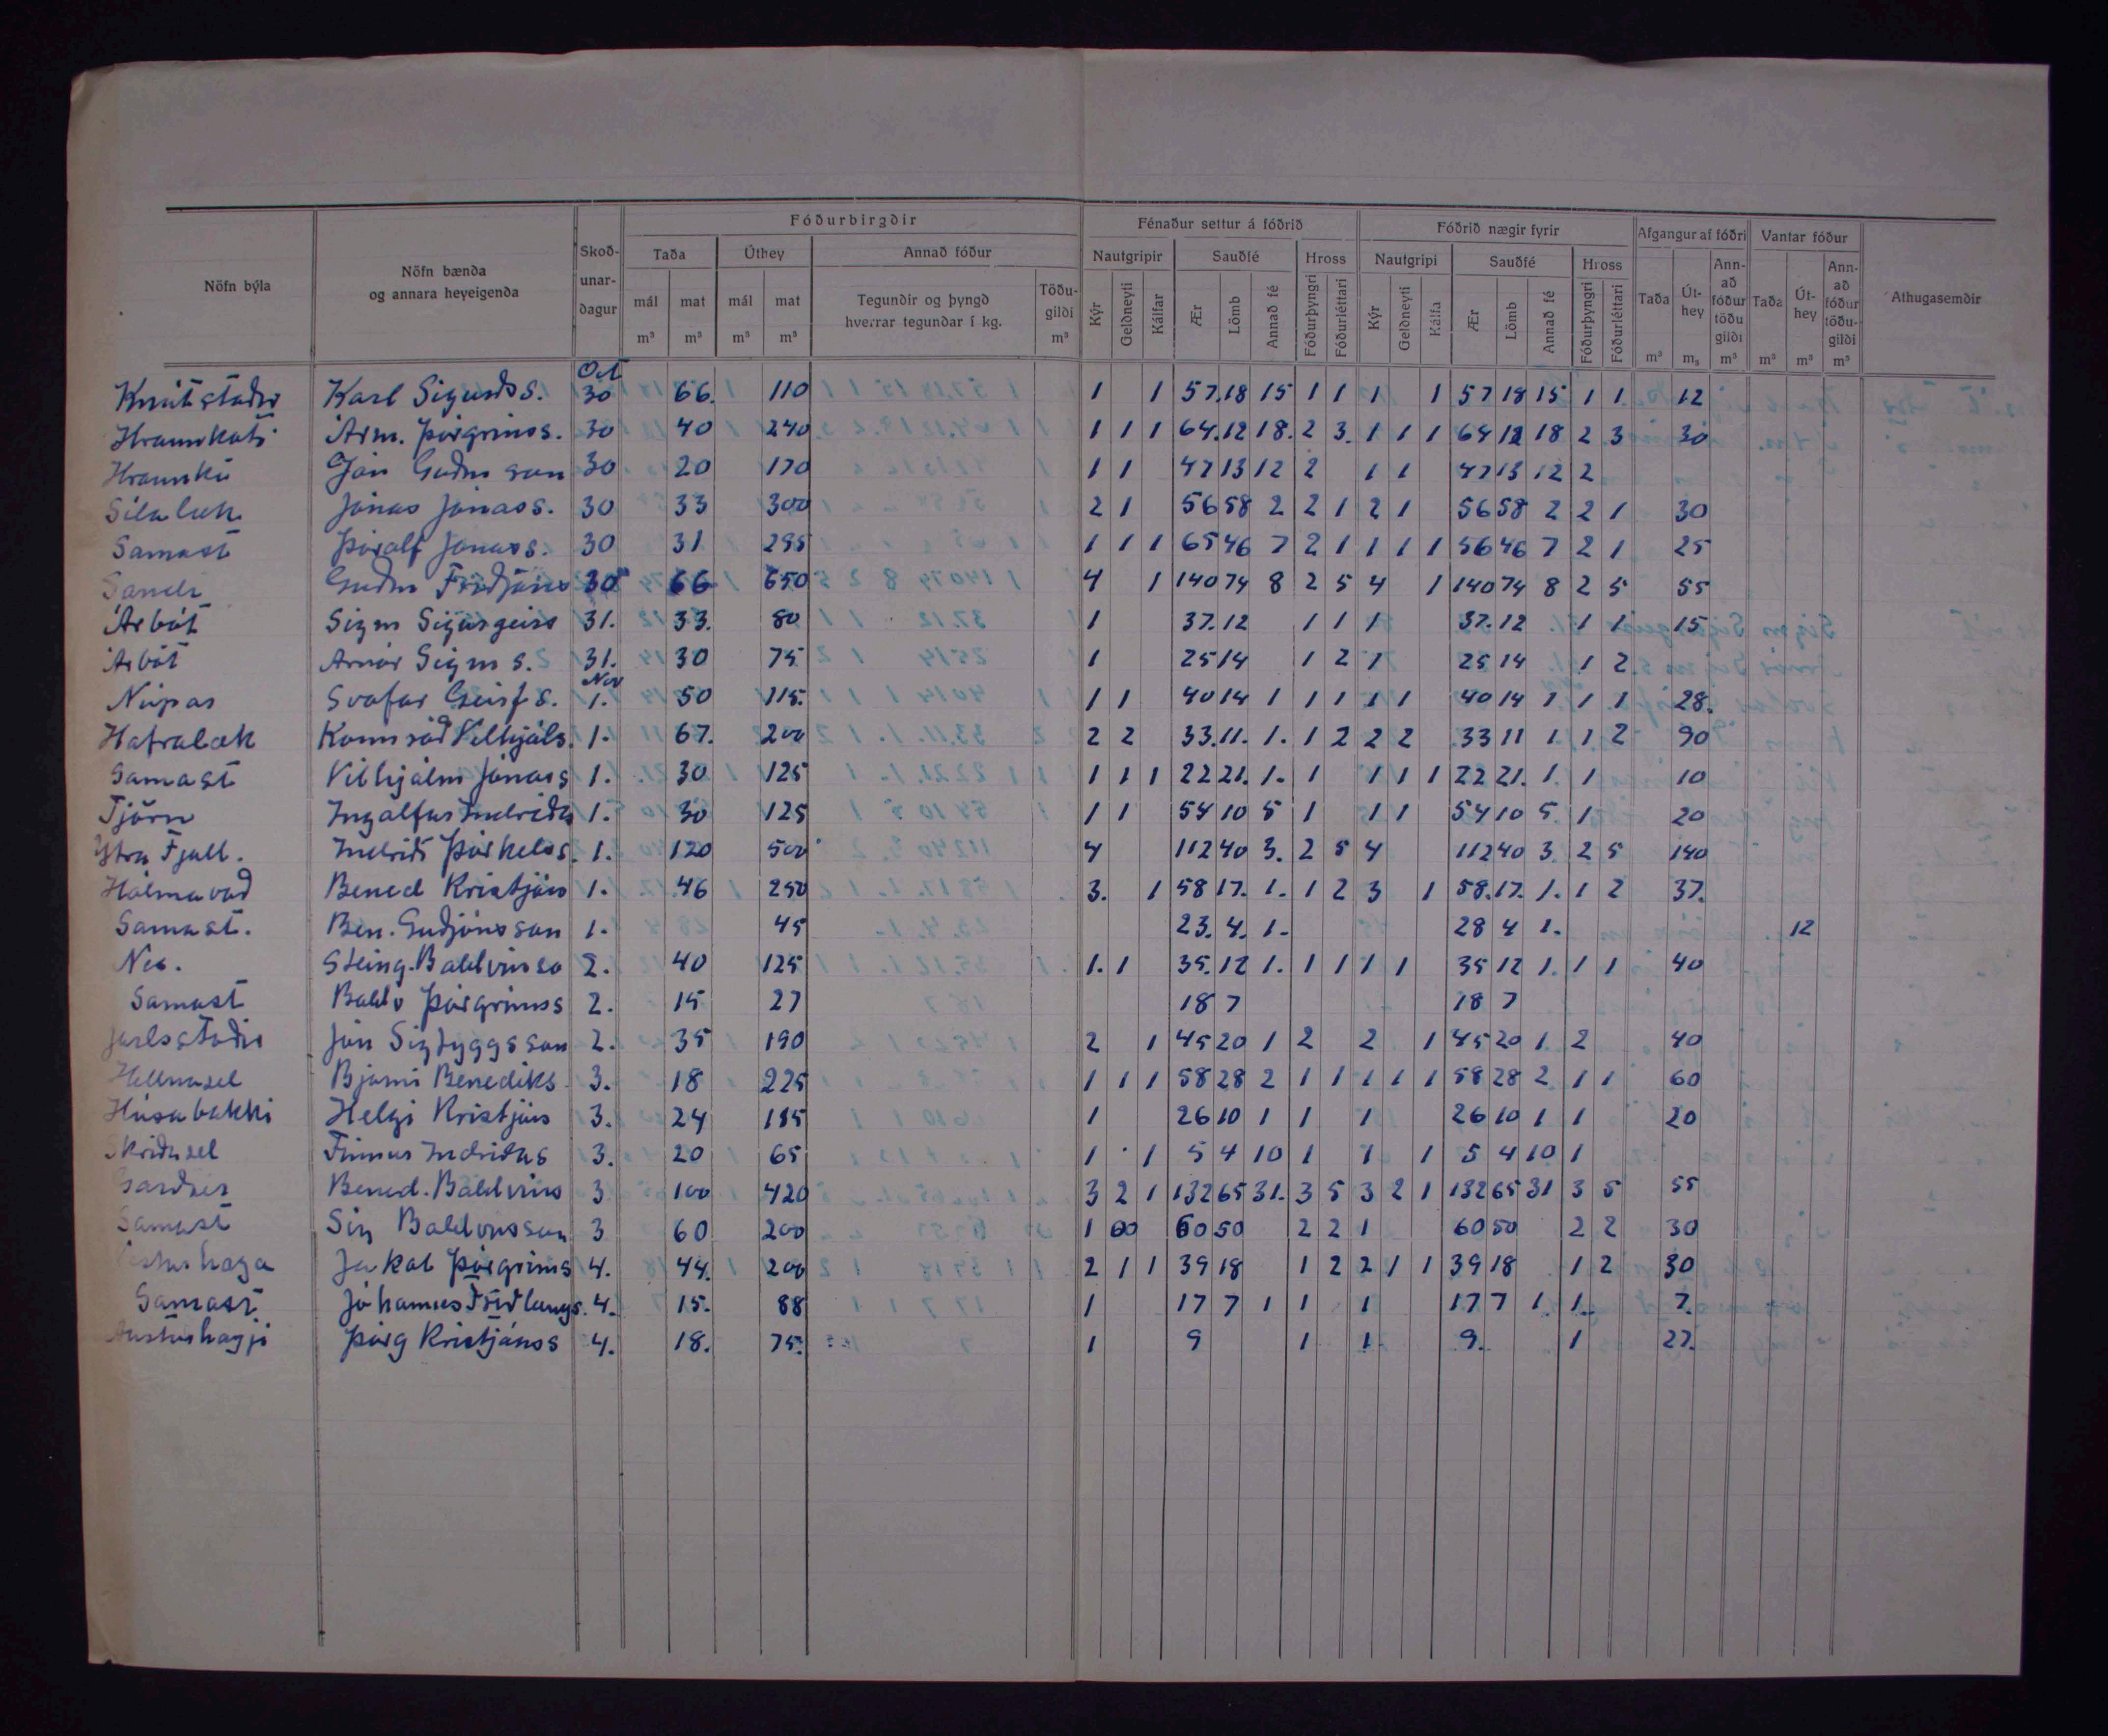 Fóðurbirgðir Fénaður settur á fóðrið Fóðrið nægir fyrir Afgangur af fóðri Vantar fóður
Nöfn býla Nöfn bænda og annara heyeigenda Skoðunardagur Taða Úthey Annað fóður Nautgripir Sauðfé Hross Nautgripi Sauðfé Hross Taða Úthey Annað fóður töðugildi Taða Úthey Annað fóður töðugildi Athugasemdir
mál mat mál mat Tegundir og þyngd hverrar tegundar í kg. Töðugildi Kýr Geldneyti Kálfar Ær Lömb Annað fé Fóðurþyngri Fóðurléttari Kýr Geldneyti Kálfa Ær Lömb Annað fé Fóðurþyngri Fóðurléttari
m³ m³ m³ m³ m³ m³ m₃ m³ m³ m³ m³
Oct
Knútstaðir Karl Sigurðss. 30 66. 110 1 1 57.18 15 1 1 1 1 57 18 15 1 1 12
Hraunkoti Arm. Þórgrims. 30 40 240 1 1 1 64.12 18. 2 3. 1 1 1 64 12 18 2 3 30
Hraunku Jón Guðm son 30 20 170 1 1 47 13 12 2 1 1 47 13 12 2
Síla læk Jónas Jónass. 30 33 300 2 1 56 58 2 2 1 2 1 56 58 2 2 1 30
Samast Þóralf Jónass. 30 31 295 1 1 1 65 46 7 2 1 1 1 1 56 46 7 2 1 25
Sandi Guðm Friðjóns 30 66 650 4 1 140 74 8 2 5 4 1 140 74 8 2 5 55
Árbót Sigm Sigurgeirs 31. 33. 80 1 37.12 1 1 1 37.12 1 1 15
Árbót Arnór Sigm s. 31. 30 75 1 25 14 1 2 1 25 14 1 2
Nov
Núpar Svafar Geirf s. 1. 50 115. 1 1 40 14 1 1 1 1 1 40 14 1 1 1 28.
Hafralæk Konnráð Vilhjáls. 1. 67. 200 2 2 33.11. 1. 1 2 2 2 33 11 1 1 2 90
Samast Vilhjálm Jónass 1. 30 125 1 1 1 22 21. 1. 1 1 1 1 22 21. 1. 1 10
Tjörn Ingalfur Indriða 1. 30 125 1 1 54 10 5 1 1 1 54 10 5. 1 20
Ytra Fjall. Indriði Þórkelss. 1. 120 500 4 112 40 3. 2 5 4 112 40 3 2 5 140
Hólmavað Bened Kristjáns 1. 46 250 3. 1 58 17. 1. 1 2 3 1 58.17. 1. 1 2 37.
Samast. Ben. Guðjónsson 1. 45 23. 4. 1. 28 4 1. 12
Nes. Steing. Baldvinsso 2. 40 125 1. 1 35.12 1. 1 1 1 1 35 12 1. 1 1 40
Samast Baldv Þórgrimss 2. 15 27 18 7 18 7
Jarlsstaðir Jón Sigtyggsson 2. 35 190 2 1 45 20 1 2 2 1 45 20 1 2 40
Hellnasel Bjarni Benediks 3. 18 225 1 1 1 58 28 2 1 1 1 1 1 58 28 2 1 1 60
Húsabakki Helgi Kristjáns 3. 24 185 1 26 10 1 1 1 26 10 1 1 20
Skriðusel Finnur Indriðas 3. 20 65 1 1 5 4 10 1 1 1 5 4 10 1
Garðser Bened. Baldvins 3 100 420 3 2 1 132 65 31. 3 5 3 2 1 132 65 31 3 5 55
Samast Sig Baldvinsson 3 60 200 1 60 50 2 2 1 60 50 2 2 30
Jakob Þórgrims 4. 44. 200 2 1 1 39 18 1 2 2 1 1 39 18 1 2 30
Samast Jóhannes Friðlaugs. 4. 15. 88 1 17 7 1 1 1 17 7 1 1 7.
Austurhagji Þórg Kristjánss 4. 18. 75. 1 9 1 1 9. 1 27.